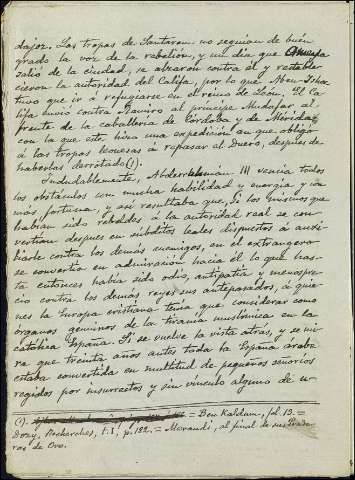 dajoz. Las tropas de Santarem no seguian de buen
grado la voz de la rebelión, y un dia que Omeya
salió de la ciudad, se alzaron contra él y restable-
cieron la autoridad del Califa, por lo que Abu-Ishac
tuvo que ir á refugiarse en el reino de León. El Ca-
lifa envió contra Ramiro al principe Mudafar al
frente de la caballeria de Córdoba y de Mérida,
con la que este hizo una expedición en que obligó
á las tropas leonesas á repasar el Duero, despues de
haberlas derrotado (1).
Indudablemente, Abderrahman III vencia todos
los obstáculos con mucha habilidad y energia y con
mas fortuna, y asi resultaba que, si los mismos que
habian sido rebeldes á la autoridad real se con-
vertian despues en súbditos leales dispuestos á auxi-
liarle contra los demás enemigos, en el extrangero
se convertia en admiración hacia él lo que has-
ta entonces habia sido odio, antipatia y menospre-
cio contra los demás reyes sus antepasados, á quie-
nes la Europa cristiana tenia que considerar como
órganos genuinos de la tirania muslímica en la
católica España. Si se vuelve la vista atrás, y se mi-
ra que treinta años antes toda la España arabe
estaba convertida en multitud de pequeños señorios
regidos por insurrectos y sin vinculo alguno de u-
(1). = Ben Kaldum, fol. 15. =
Dozy, Recherches, t. I, p. 182. = Morandi, al final de sus Prade-
ras de Oro.